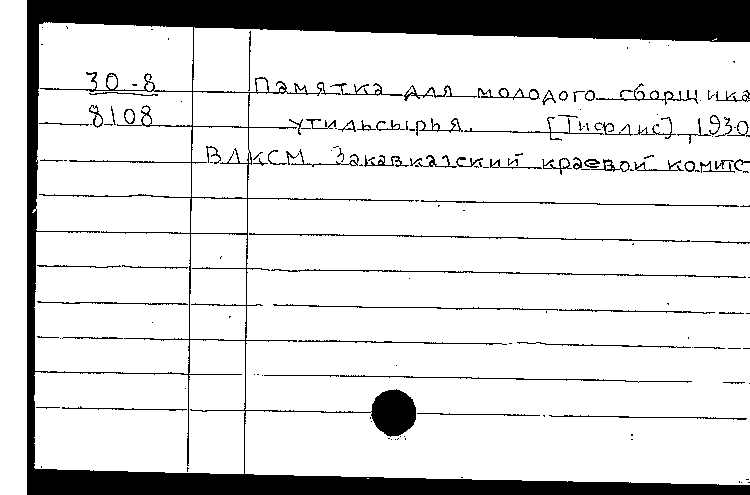 30-8
8108
Памятка для молодого сборщика
утильсырья. [Тифлис], 1930
ВЛКСМ. Закавказский краевой комите